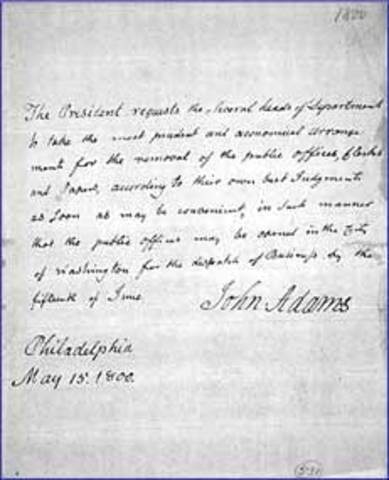 1800
The President requests the several heads of Department
to take the most prudent and economical arrange
ments for the removal of the public offices, Clerks
and Papers, according to their own best Judgments
as soon as may be convenient, in such manner
that the public offices may be opened in the City
of Washington for the dispatch of Business by the
fifteenth of June.
John Adams
Philadelphia
May 15. 1800.